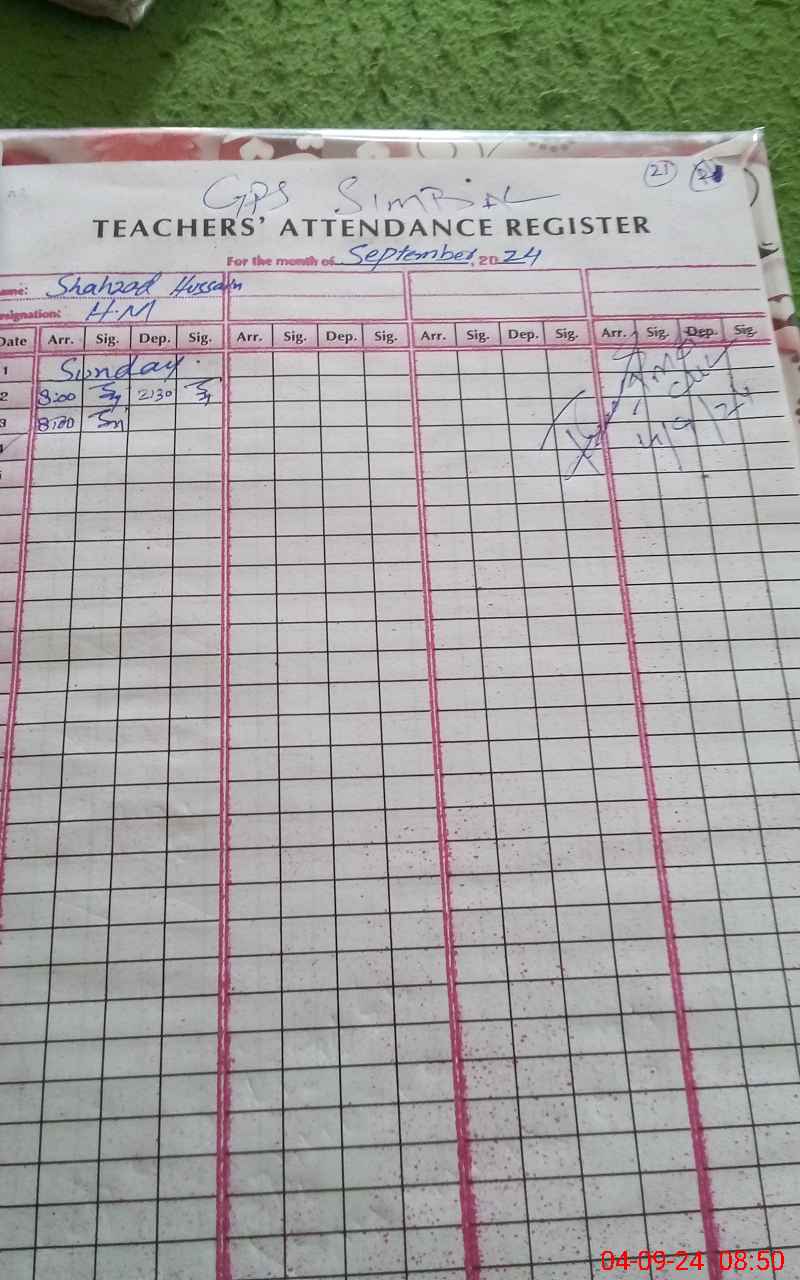 21
GPS SIMBAL
TEACHERS' ATTENDANCE REGISTER
For the month of September, 2024
ame: Shahzad Hussain
esignation: H.M
Date Arr. Sig. Dep. Sig. Arr. Sig. Dep. Sig. Arr. Sig. Dep. Sig. Arr. Sig. Dep. Sig.
1 Sunday
2 8:00 2:30
3 8:00
4/9/24
04-09-24 08:50